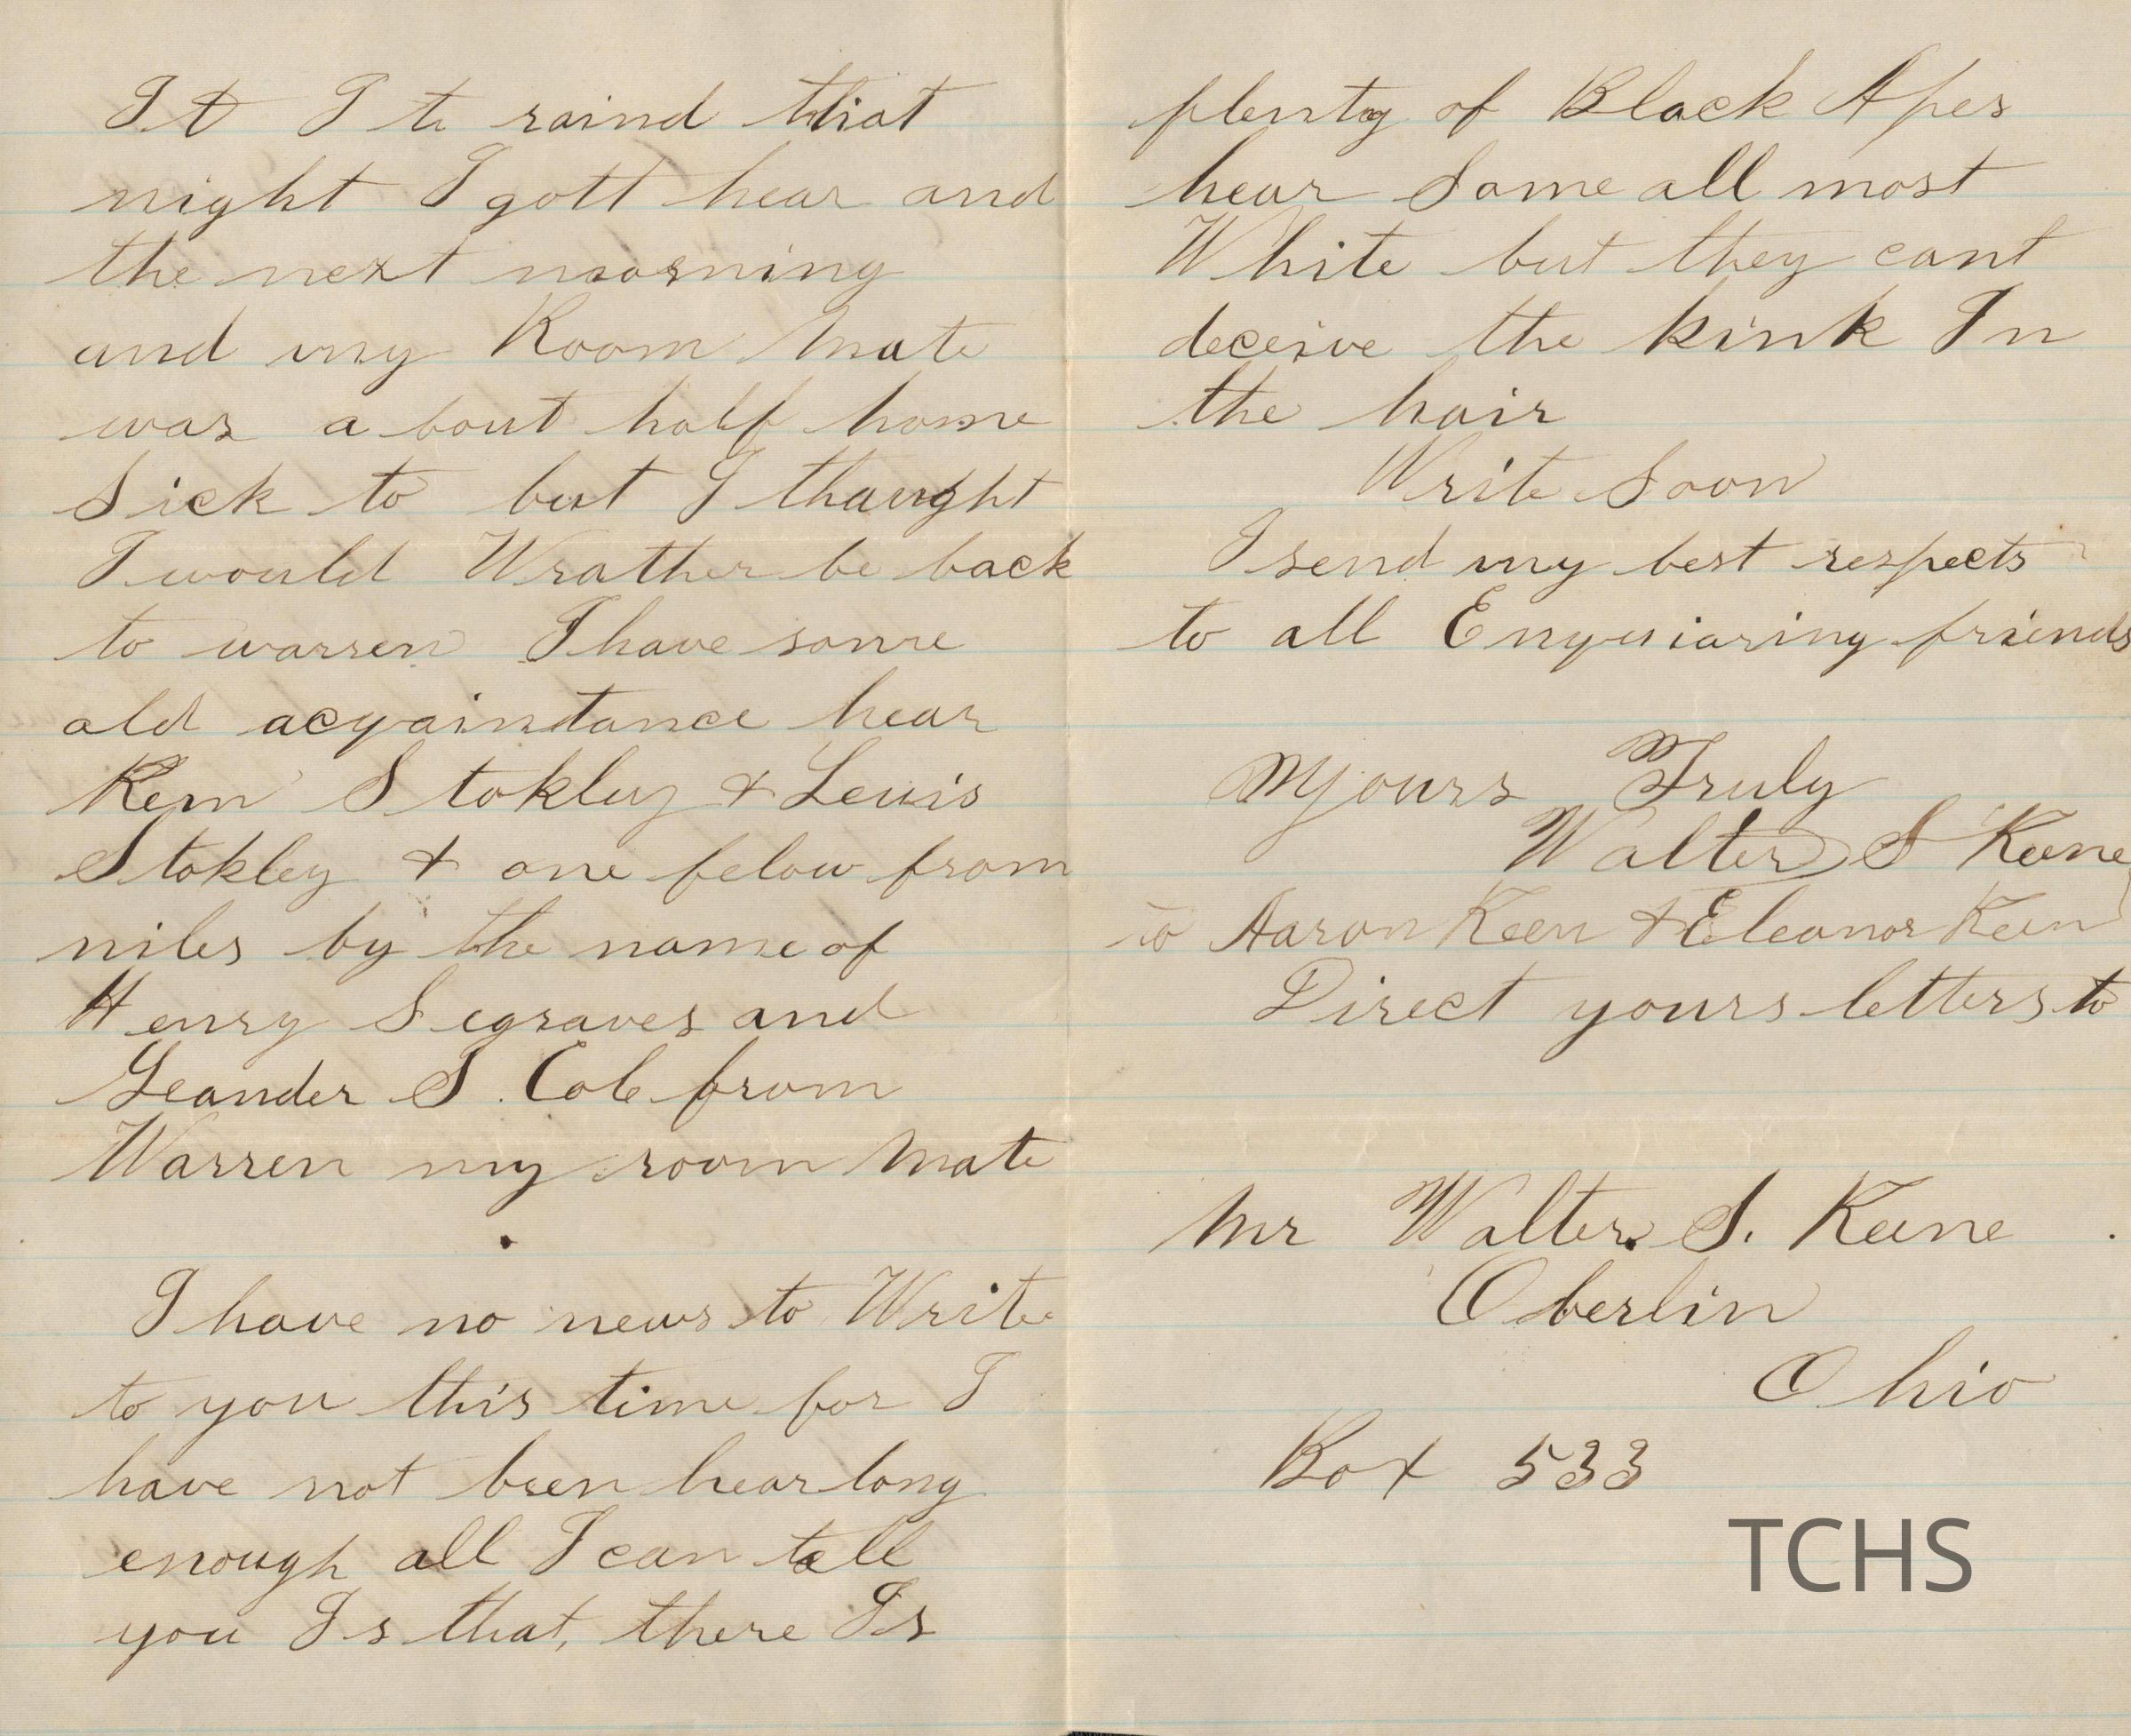 It I te raind that
night I gott hear and
the next morning
and my Room Mate
was a bout half home
Sick to but I thought
I would Wrather be back
to warren I have some
old acqaintance hear
Rem Stokley & Lewis
Stokley & one felow from
niles by the name of
Henry Segraves and
Leander S. Cole from
Warren my room Mate
I have no news to Write
to you this time for I
have not been hear long
enough all I can tell
you Is that, there Is
plenty of Black Apes
hear Some all most
White but they cant
deceive the kink In
the hair
Write Soon
I send my best respects
to all Enquiaring friends
Yours Truly
Walter S Keene
to Aaron Keen & Eleanor Keen
Direct yours letters to
Mr Walter. S. Keene
Oberlin
Ohio
Box 533
TCHS